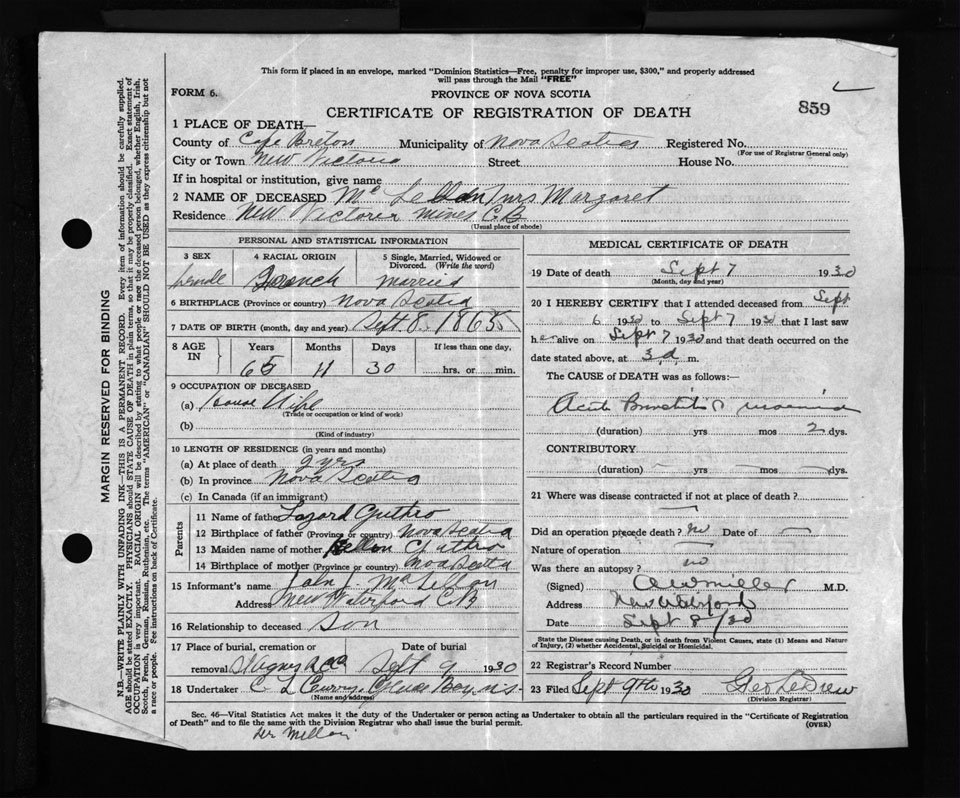 This form if placed in an envelope, marked "Dominion Statistics—Free, penalty for improper use, $300," and properly addressed
will pass through the Mail "FREE"
FORM 6.
PROVINCE OF NOVA SCOTIA
859
CERTIFICATE OF REGISTRATION OF DEATH
1 PLACE OF DEATH—
County of Cape Breton Municipality of Nova Scotia Registered No.
(For use of Registrar General only)
City or Town New Victoria Street House No.
If in hospital or institution, give name
2 NAME OF DECEASED Mc Lellan Mrs Margaret
Residence New Victoria Mines C.B
(Usual place of abode)
PERSONAL AND STATISTICAL INFORMATION
3 SEX 4 RACIAL ORIGIN 5 Single, Married, Widowed or Divorced. (Write the word)
female French Married
6 BIRTHPLACE (Province or country) Nova Scotia
7 DATE OF BIRTH (month, day and year) Sept. 8. 1865
8 AGE IN Years Months Days If less than one day,
65 11 30 hrs. or min.
9 OCCUPATION OF DECEASED
(a) House Wife
(Trade or occupation or kind of work)
(b)
(Kind of industry)
10 LENGTH OF RESIDENCE (in years and months)
(a) At place of death 2 yrs
(b) In province Nova Scotia
(c) In Canada (if an immigrant)
Parents
11 Name of father Lazard Guthro
12 Birthplace of father (Province or country) Nova Scotia
13 Maiden name of mother Guthro
14 Birthplace of mother (Province or country) Nova Scotia
15 Informant's name John J. McLellan
Address New Waterford C.B
16 Relationship to deceased Son
17 Place of burial, cremation or Date of burial
removal Sept 9 1930
18 Undertaker C L Curry, Glace Bay N.S.
(Name and address)
MEDICAL CERTIFICATE OF DEATH
19 Date of death Sept 7 1930
(Month, day and year)
20 I HEREBY CERTIFY that I attended deceased from Sept
6 1930 to Sept 7 1930 that I last saw
her alive on Sept 7 1930 and that death occurred on the
date stated above, at 3 a. m.
The CAUSE of DEATH was as follows:—
Acute Bronchitis
(duration) yrs mos 2 dys.
CONTRIBUTORY
(duration) — yrs — mos — dys.
21 Where was disease contracted if not at place of death?
—
Did an operation precede death? no Date of —
Nature of operation —
Was there an autopsy? no
(Signed) Miller M.D.
Address New Waterford
Date Sept 8/30
State the Disease causing Death, or in death from Violent Causes, state (1) Means and Nature
of Injury, (2) whether Accidental, Suicidal or Homicidal.
22 Registrar's Record Number
23 Filed Sept 9th 1930 Geo LeDrew
(Division Registrar)
Sec. 46—Vital Statistics Act makes it the duty of the Undertaker or person acting as Undertaker to obtain all the particulars required in the "Certificate of Registration
of Death" and to file the same with the Division Registrar who shall issue the burial permit.
(OVER)
MARGIN RESERVED FOR BINDING
N.B.—WRITE PLAINLY WITH UNFADING INK—THIS IS A PERMANENT RECORD. Every item of information should be carefully supplied.
AGE should be stated EXACTLY. PHYSICIANS should STATE CAUSE OF DEATH in plain terms, so that it may be properly classified. Exact statement of
OCCUPATION is very important. RACIAL ORIGIN will be described by stating to what people or race the deceased person belonged, whether English, Irish,
Scotch, French, German, Russian, Ruthenian, etc. The terms "AMERICAN" or "CANADIAN" SHOULD NOT BE USED as they express citizenship but not
a race or people. See instructions on back of Certificate.